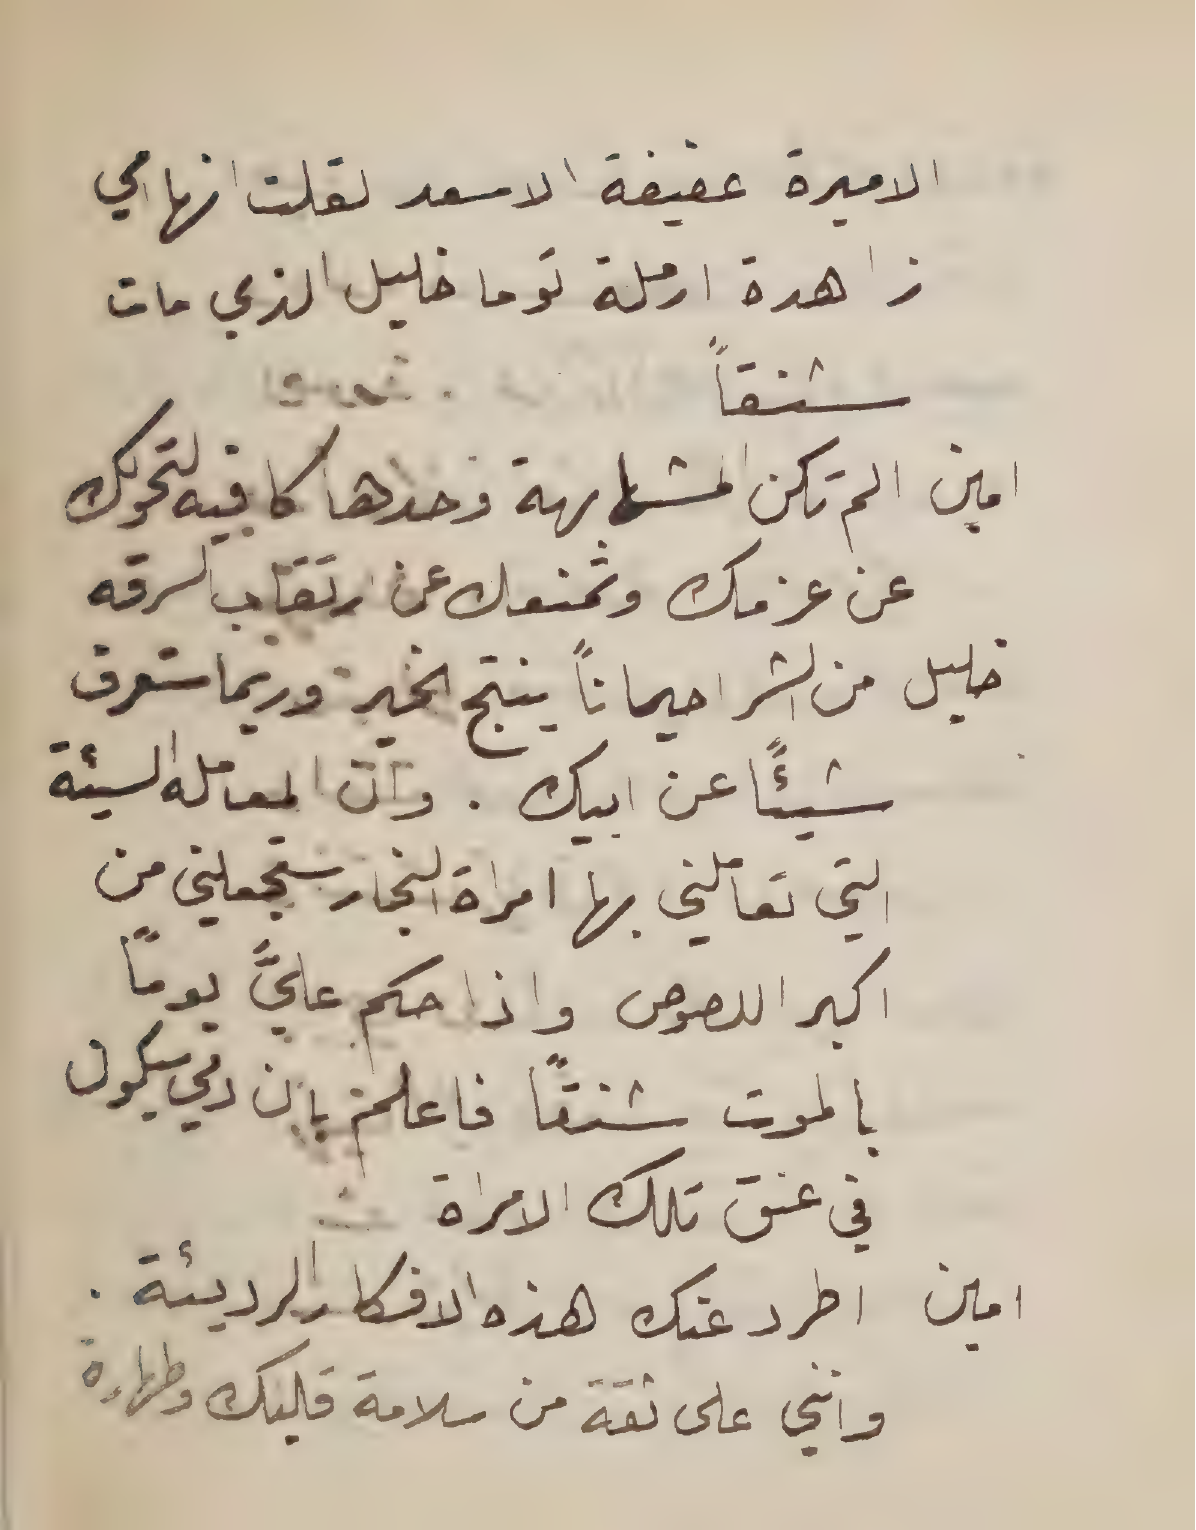 الاميرة عفيفة الاسعد لقلت انها امي
زاهدة ارملة توما خليل الذي مات
شنقاً
امين الم تكن المشابهة وحدها كافيه لتحولك
عن عزمك وتمنعك عن ارتقاب السرقه
خليل من الشر احياناً ينتج الخير وربما ستعرف
شيئًا عن ابيك . وان المعامله السيئة
التي تعاملني بها امراة النجار ستجعلني من
اكبر اللصوص واذا حكم عليَّ يومًا
بالموت شنقًا فاعلم بان دمي سيكون
في عنق تلك الامراة
امين اطرد عنك هذه الافكار الرديئة .
وانني على ثقة من سلامة قلبك وطهارة